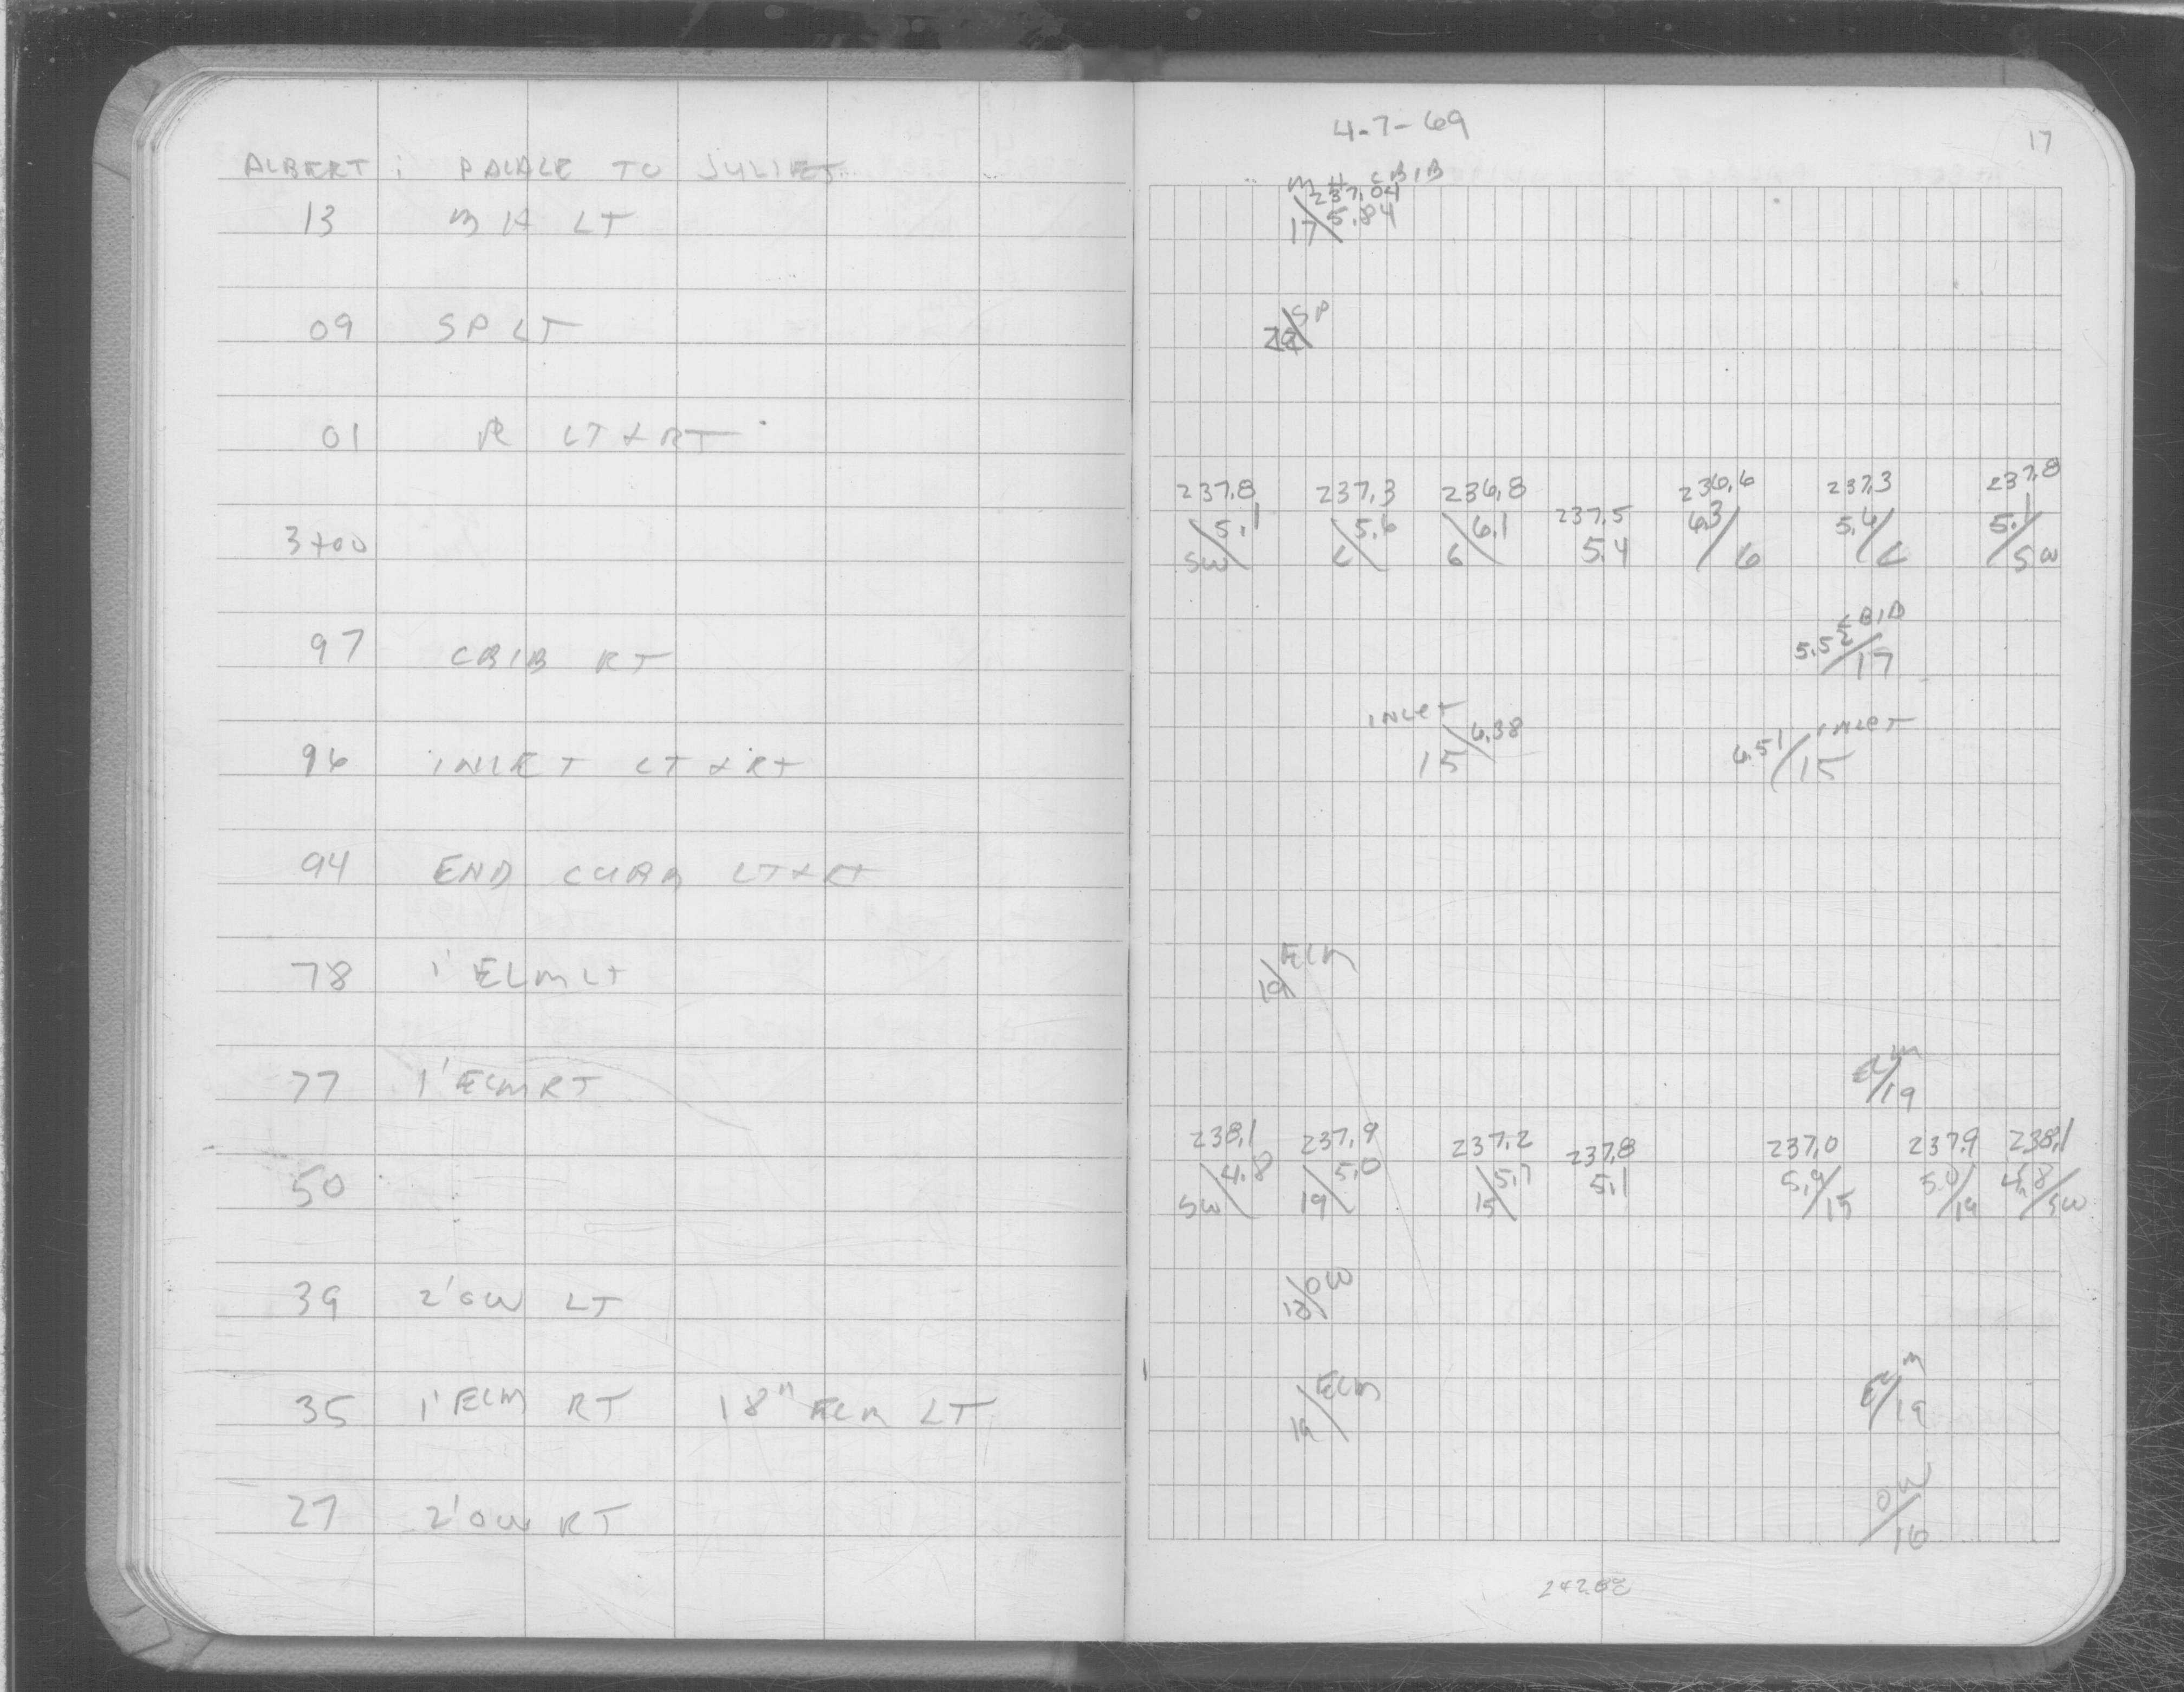 ALBERT : PALACE TO JULIET
13 MH LT
09 SP LT
01 LT & RT
3+00
97 CBIB RT
96 INLET LT & RT
94 END CURB LT & RT
78 1' ELM LT
77 1' ELM RT
50
39 2' OW LT
35 1' ELM RT 18" ELM LT
27 2' OW RT
4-7-69
17
MH CBIB
237.04
17 5.84
SP
237.8 237.3 236.8 237.5 236.6 237.3 237.8
5.1 5.6 6.1 5.4 6.3 5.6 5.1
SW C 6 6 C SW
CBIB
5.52 17
INLET 6.38 6.51 INLET
15 15
ELM
19
ELM
19
238.1 237.9 237.2 237.8 237.0 237.9 238.1
4.8 5.0 5.7 5.1 5.9 5.0 4.8
SW 19 15 15 19 SW
OW
ELM ELM
19 19
OW